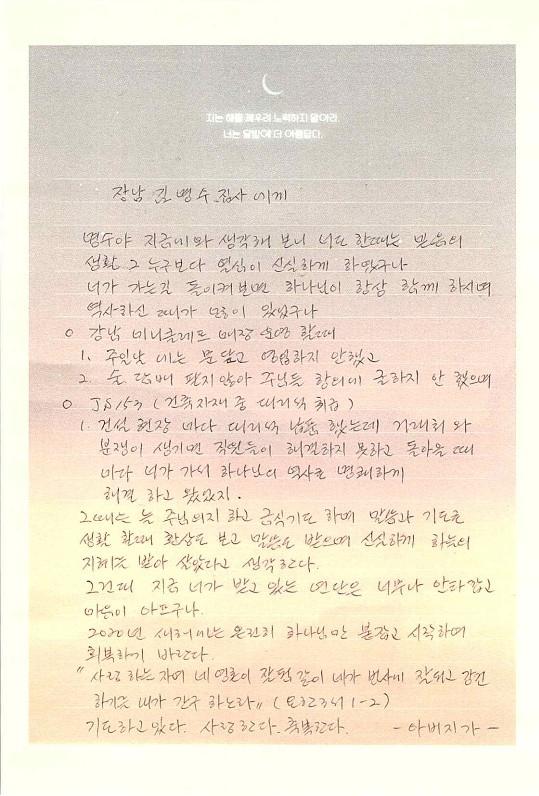 지는 해를 깨우려 노력하지 말아라.
너는 달빛에 더 아름답다.
장남 김명수 집사에게
명수야 지금에와 생각해 보니 너도 한때는 믿음의
생활 그 누구보다 열심이 신실하게 하였구나
너가 가는길 돌이켜보면 하나님이 항상 함께 하시며
역사하신 때가 많이 있었구나
○ 강남 미니골레드 매장 운영 할때
1. 주일날 에는 문 닫고 영업하지 안했고
2. 술 담배 팔지않아 주님들 항의에 굴하지 안 했으며
○ JS153 (건축자재 중 대리석 취급)
1. 건설 현장 마다 대리석 납품 했는데 거래회와
분쟁이 생기면 직원들이 해결하지 못하고 돌아올 때
마다 너가 가서 하나님의 역사로 명쾌하게
해결 하고 왔었지.
그때는 늘 주님의지 하고 금식기도 하며 말씀과 기도로
생활 할때 환상도 보고 말씀도 받으며 신실하게 하늘의
지혜를 받아 살았다고 생각한다.
그런데 지금 너가 받고 있는 연단은 너무나 안타깝고
마음이 아프구나.
2020년 새해에는 온전히 하나님만 붙잡고 시작하여
회복하기 바란다.
"사랑하는 자여 네 영혼이 잘됨 같이 네가 범사에 잘되고 강건
하기를 내가 간구 하노라" (요한3서 1-2)
기도하고 있다. 사랑한다. 축복한다. - 아버지가 -